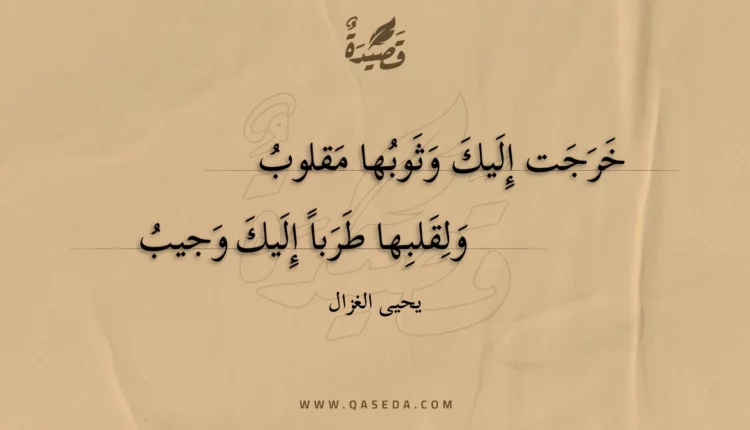 قَصِيدَةٌ
خَرَجَت إِلَيكَ وَثَوبُها مَقلوبُ
وَلِقَلبِها طَرَباً إِلَيكَ وَجيبُ
يحيى الغزال
WWW.QASEDA.COM